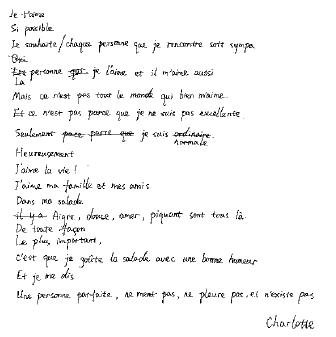 Je t'aime
Si possible
Je souhaite / chaque personne que je rencontre soit sympa
Oui
La personne que je l'aime et il m'aime aussi
Mais ce n'est pas tout le monde qui bien m'aime.
Et ce n'est pas parce que je ne suis pas excellente.
Seulement parce que je suis ordinaire. normale
Heureusement
J'aime la vie !
J'aime ma famille et mes amis
Dans ma salade
il y a Aigre, douce, amer, piquant sont tous là.
De toute façon
Le plus important,
c'est que je goûte la salade avec une bonne humeur
Et je me dis
Une personne parfaite, ne ment pas, ne pleure pas, et n'existe pas
Charlotte